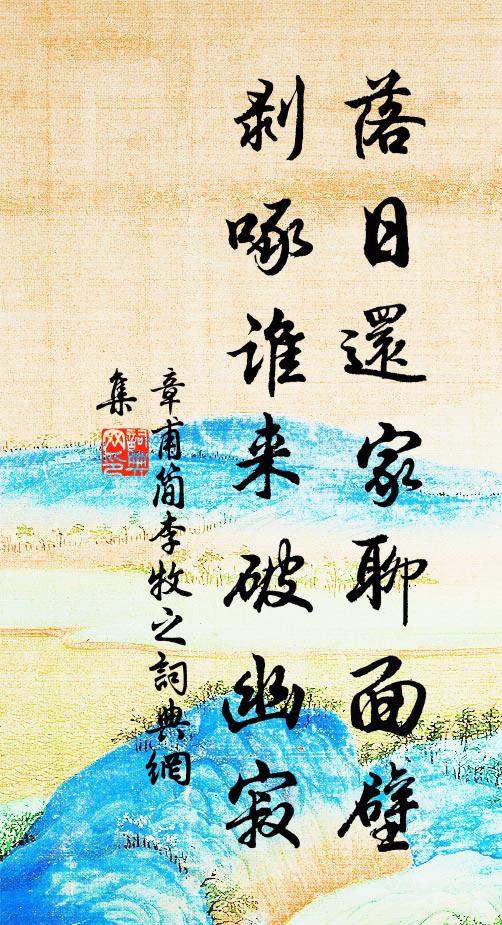 落日還家聊面壁
剥啄誰来破幽寂
章甫简李牧之詞典網
集